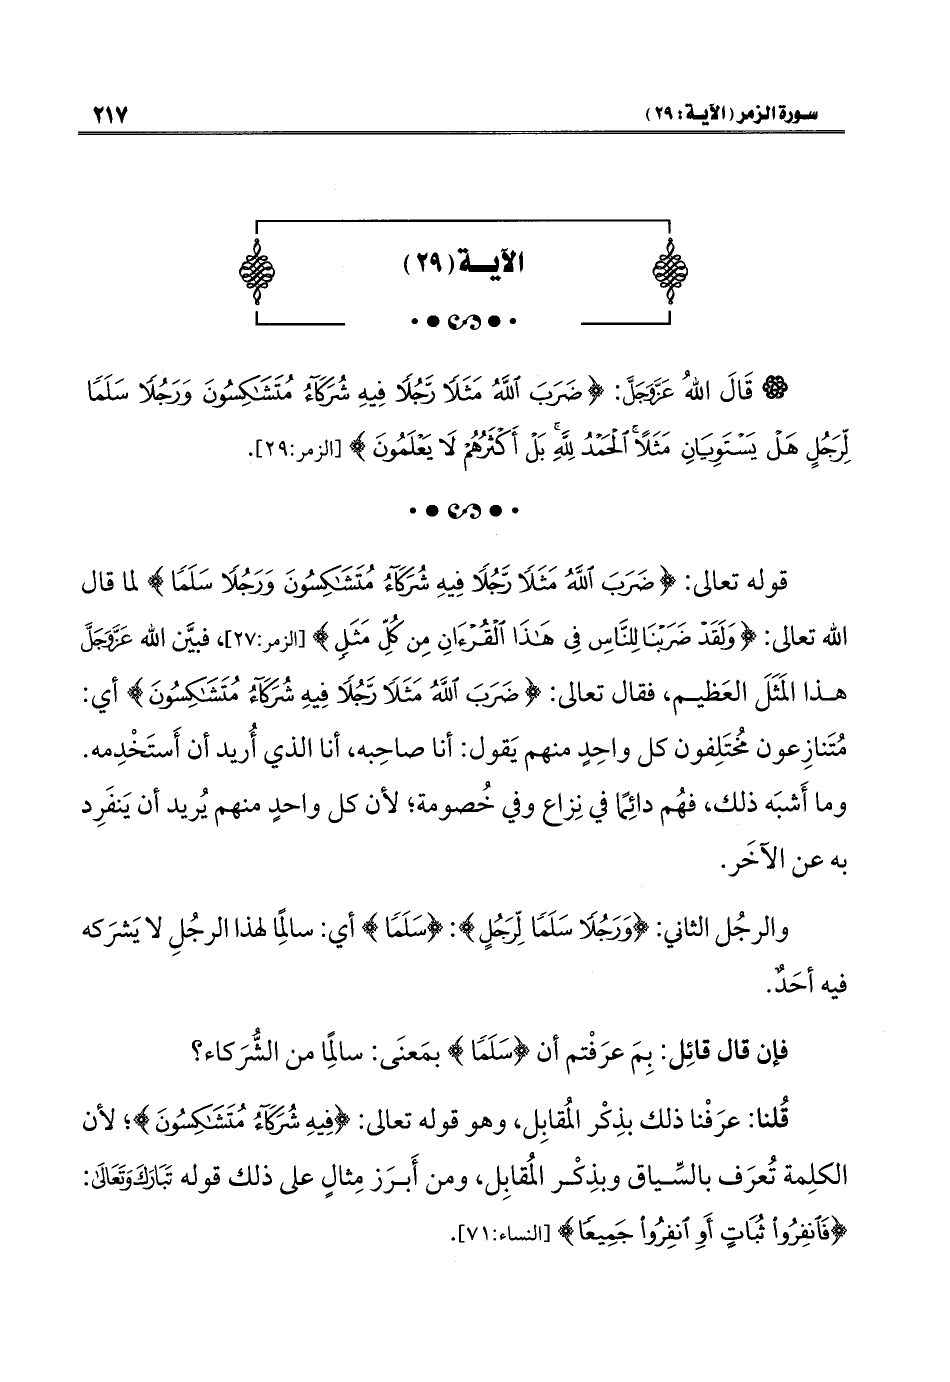 سورة الزمر (الآية: ٢٩)
٢١٧
الآية (٢٩)
قَالَ اللهُ عَزَّوَجَلَّ: ﴿ ضَرَبَ ٱللَّهُ مَثَلًا رَّجُلًا فِيهِ شُرَكَآءُ مُتَشَٰكِسُونَ وَرَجُلًا سَلَمًا
لِّرَجُلٍ هَلْ يَسْتَوِيَانِ مَثَلًا ۚ ٱلْحَمْدُ لِلَّهِ ۚ بَلْ أَكْثَرُهُمْ لَا يَعْلَمُونَ ﴾ [الزمر:٢٩].
قوله تعالى: ﴿ ضَرَبَ ٱللَّهُ مَثَلًا رَّجُلًا فِيهِ شُرَكَآءُ مُتَشَٰكِسُونَ وَرَجُلًا سَلَمًا ﴾ لما قال
الله تعالى: ﴿ وَلَقَدْ ضَرَبْنَا لِلنَّاسِ فِى هَٰذَا ٱلْقُرْءَانِ مِن كُلِّ مَثَلٍ ﴾ [الزمر:٢٧]، فبيَّن الله عَزَّوَجَلَّ
هذا المَثَلَ العَظيم، فقال تعالى: ﴿ ضَرَبَ ٱللَّهُ مَثَلًا رَّجُلًا فِيهِ شُرَكَآءُ مُتَشَٰكِسُونَ ﴾ أي:
مُتَنازِعون مُختَلِفون كل واحِدٍ منهم يَقول: أنا صاحِبه، أنا الذي أُريد أن أَستَخْدِمه.
وما أَشبَه ذلك، فهُم دائِمًا في نِزاع وفي خُصومة؛ لأن كل واحدٍ منهم يُريد أن يَنفَرِد
به عن الآخَر.
والرجُل الثاني: ﴿وَرَجُلًا سَلَمًا لِّرَجُلٍ﴾: ﴿سَلَمًا ﴾ أي: سالِمًا لهذا الرجُلِ لا يَشرَكه
فيه أحَدٌ.
فإن قال قائِل: بِمَ عرَفْتم أن ﴿سَلَمًا ﴾ بمَعنَى: سالِمًا من الشُّرَكاء؟
قُلنا: عرَفْنا ذلك بذِكْر المُقابِل، وهو قوله تعالى: ﴿فِيهِ شُرَكَآءُ مُتَشَٰكِسُونَ ﴾؛ لأن
الكلِمة تُعرَف بالسِّياق وبذِكْر المُقابِل، ومن أَبرَز مِثالٍ على ذلك قوله تَبَارَكَ وَتَعَالَىٰ:
﴿فَٱنفِرُوا۟ ثُبَاتٍ أَوِ ٱنفِرُوا۟ جَمِيعًا﴾ [النساء:٧١].